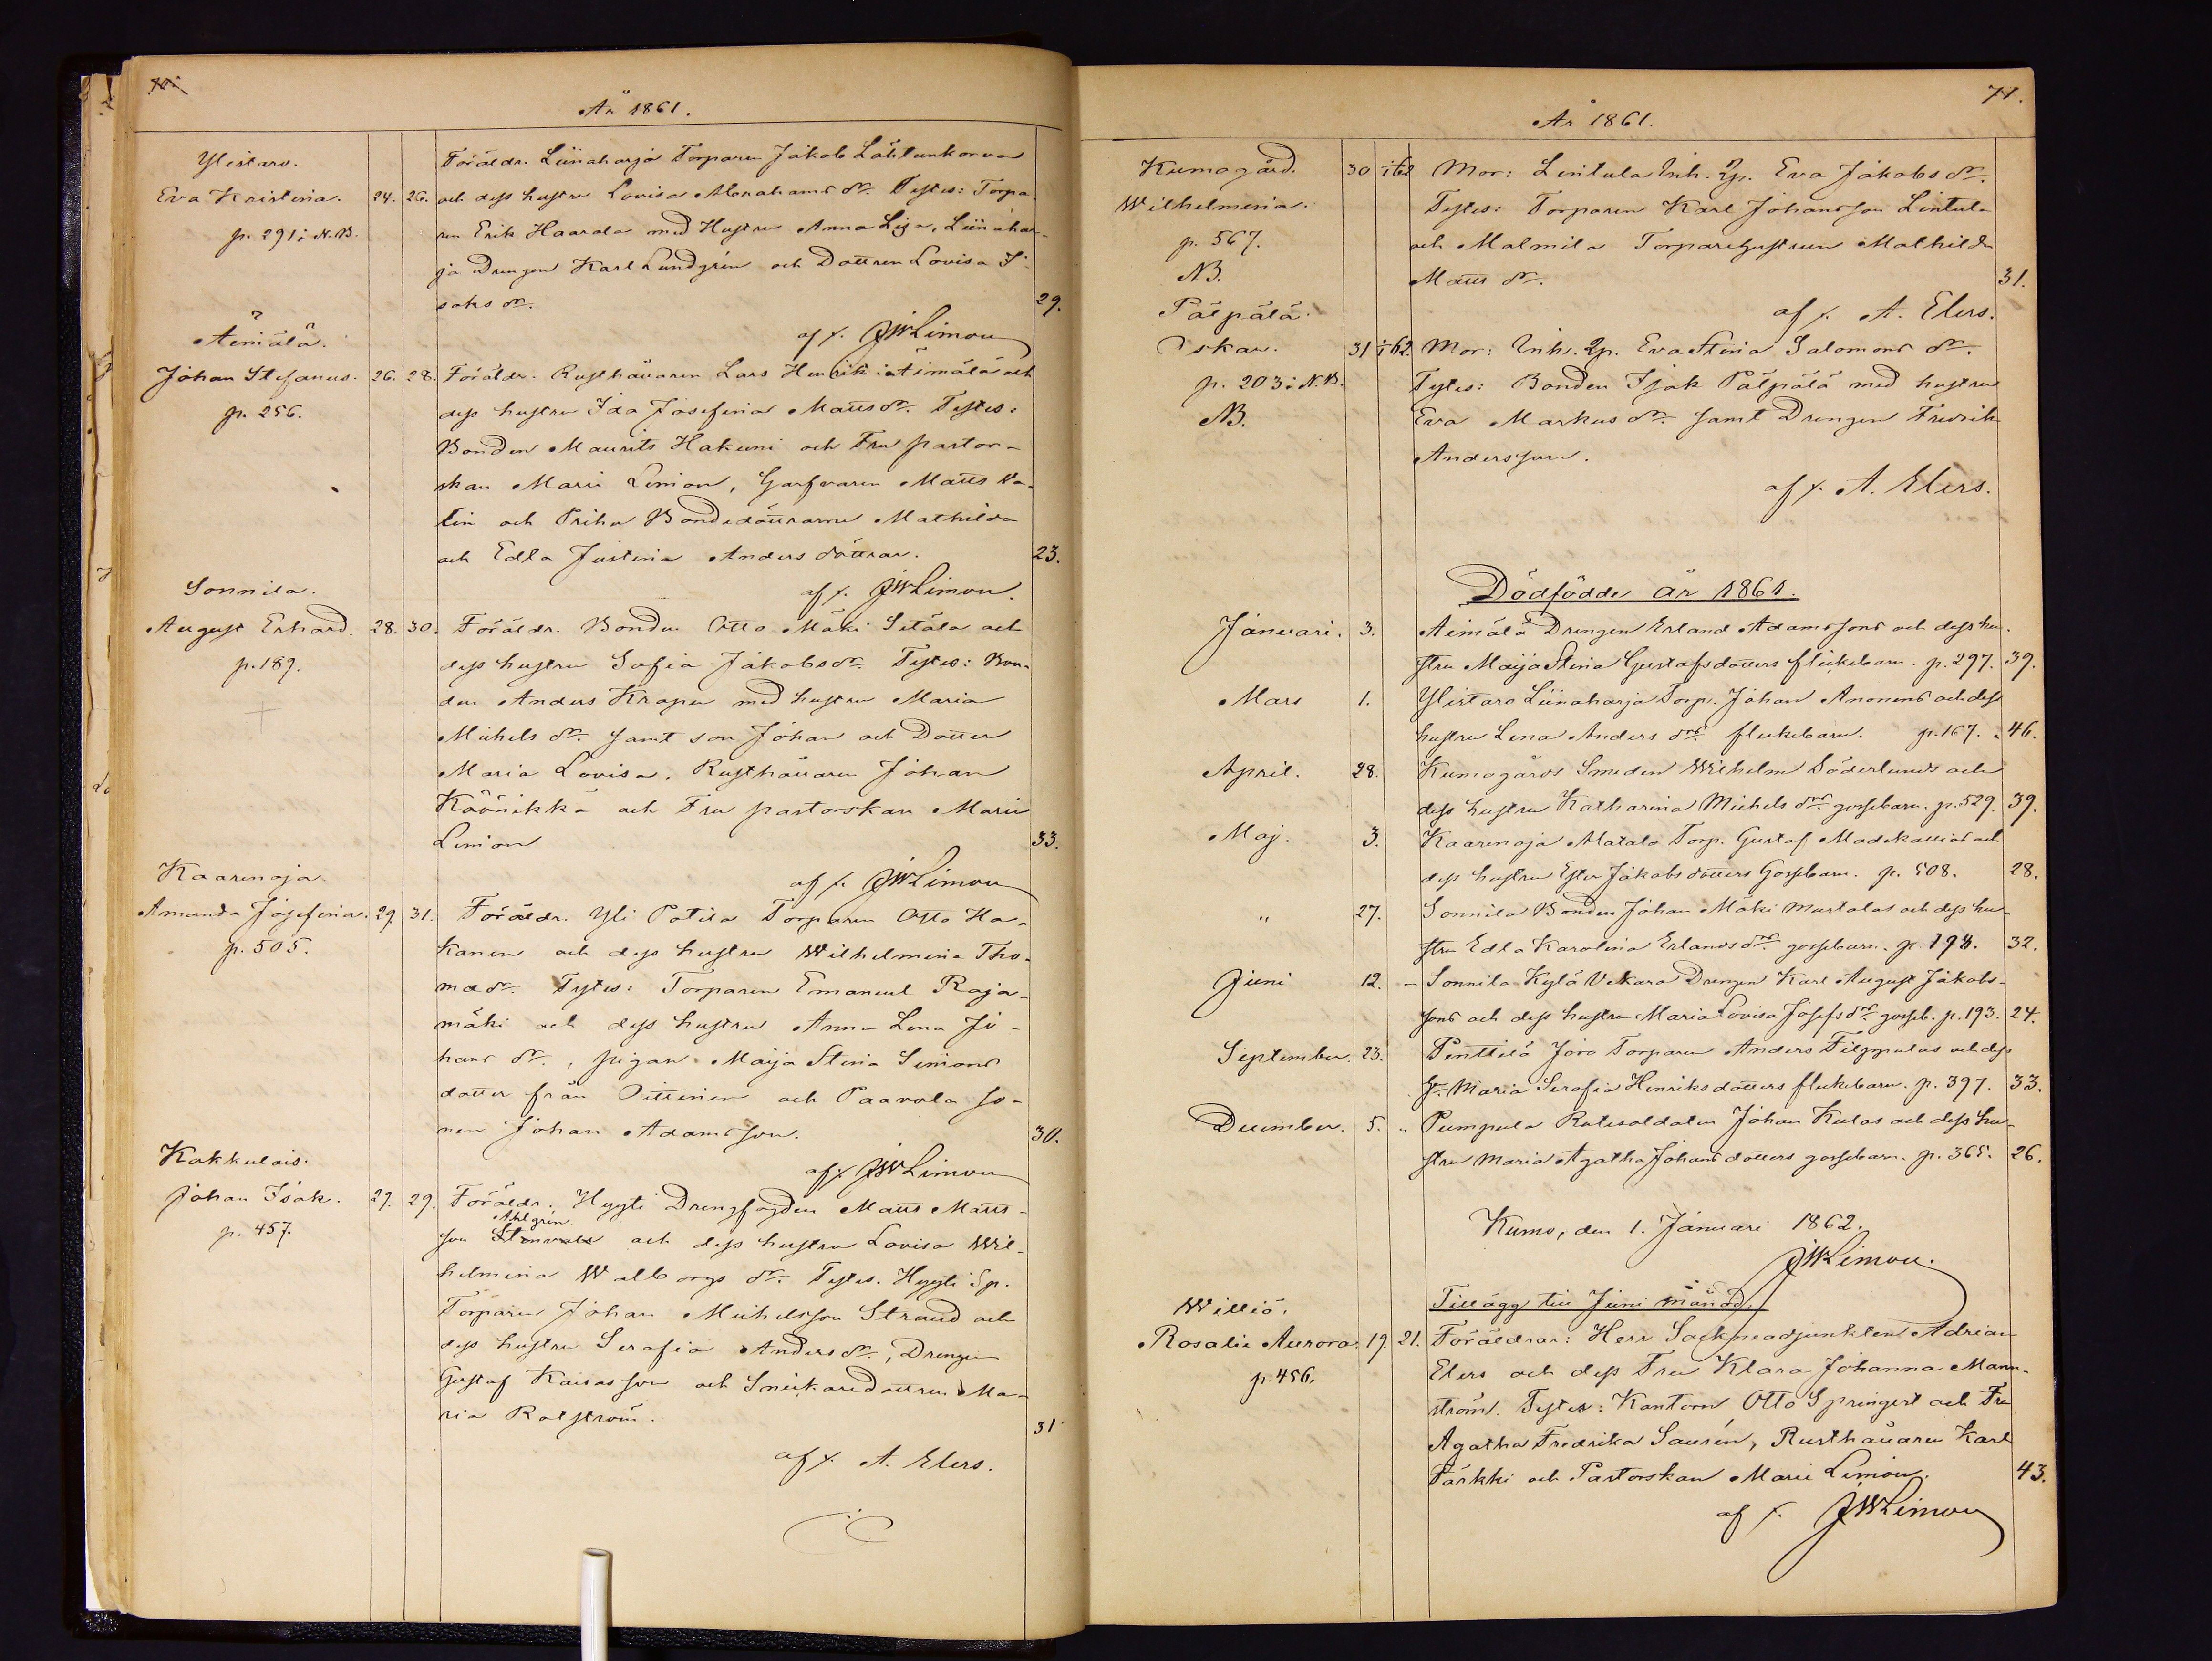 År 1861.
Ylistaro.
Eva Kristina. 24. 26.
p. 291 i N.B.
Föräldr. Liinaharja Torparen Jakob Lähteenkorva
och dess hustru Lovisa Abrahams dr. Testes: Torpa-
ren Erik Haarala med Hustru Anna Lisa, Liinahar-
ja Drengen Karl Lundgrén och Dottren Lovisa I-
saks dr. 29.
af f. JWLimon
Äimälä.
Johan Stefanus. 26. 28.
p. 256.
Föräldr. Rusthållaren Lars Henrik Äimälä och
dess hustru Ida Josefina Matts dr. Testes:
Bonden Maurits Hakuni och Fru pastor-
skan Marie Limon, Garfvaren Matts Wa-
lin och Priha Bondedöttrarne Mathilda
och Edla Justina Anders döttrar. 23.
af f. JWLimon.
Sonnila.
August Erhard. 28. 30.
p. 189.
Föräldr. Bonden Otto Mäki Setälä och
dess hustru Sofia Jakobs dr. Testes: Bon-
den Anders Krapu med hustru Maria
Michels dr. samt son Johan och Dotter
Maria Lovisa, Rusthållaren Johan
Köönikkä och Fru pastorskan Marie
Limon 33.
af f. JWLimon
Kaarenoja.
Amanda Josefina. 29 31.
p. 505.
Föräldr. Yli Potila Torparen Otto Ha-
kanen och dess hustru Wilhelmina Tho-
mæ dr. Testes: Torparen Emanuel Raja-
mäki och dess hustru Anna Lena Jo-
hans dr., pigan Maija Stina Simons
dotter från Pittinen och Paavola so-
nen Johan Adamsson. 30.
af f. JWLimon
Kakkulais.
Johan Isak. 29. 29.
p. 457.
Föräldr. Hyyti Drengfogden Matts Matts-
Ahlgrén.
son Stenvala och dess hustru Lovisa Wil-
helmina Walborgs dr. Testes. Hyyti Sp.
Torparen Johan Michelsson Strand och
dess hustru Serafia Anders dr., Drengen
Gustaf Kaisasson och Snickaredottren Ma-
ria Rotström. 31
af f. A. Elers.
71.
År 1861.
Kumogård. 30 1/1 62
Wilhelmina.
p. 567.
NB.
Mor: Lintula Inh. Qp. Eva Jakobs dr.
Testes: Torparen Karl Johansson Lintula
och Malmila Torparehustrun Mathilda
Matts dr. 31.
af f. A. Elers.
Pälpälä.
Oskar. 31 1/1 62.
p. 203 i N.B.
NB.
Mor: Inh. Qp. Eva Stina Salomons dr.
Testes: Bonden Isak Pälpälä med hustru
Eva Markus dr. samt Drengen Fredrik
Andersson.
af f. A. Elers.
Dödfödde år 1861.
Januari. 3. Äimälä Drengen Erland Adamssons och dess hu-
stru Maija Stina Gustafsdotters flickebarn. p. 297. 39.
Mars 1. Ylistaro Liinaharja Torp. Johan Anonens och dess
hustru Lena Anders drs flickebarn. p. 167. 46.
April. 28. Kumogårds Smeden Wilhelm Söderlunds och
dess hustru Katharina Michels drs gossebarn. p. 529. 39.
Maj. 3. Kaarenoja Alatalo Torp. Gustaf Madekallios och
dess hustru Ester Jakobs dotters Gossebarn. p. 508. 28.
" 27. Sonnila Bonden Johan Mäki Mustalas och dess hu-
stru Edla Karolina Erlands drs gossebarn. p. 198. 32.
Juni 12. – Sonnila Kylä Vekara Drengen Karl August Jakobs-
sons och dess hustru Maria Lovisa Josefs drs gosseb. p. 193. 24.
September. 23. Penttilä Jöro Torparen Anders Filppulas och dess
hr. Maria Serafia Henriks dotters flickebarn. p. 397. 33.
December. 5. Pumpula Rotesoldaten Johan Kulas och dess hu-
stru Maria Agatha Johans dotters gossebarn. p. 365. 26.
Kumo, den 1. Januari 1862.
JWLimon.
Tillägg till Juni månad.
Williö.
Rosalie Aurora 19. 21.
p. 456.
Föräldrar: Herr Sockneadjunkten Adrian
Elers och dess Fru Klara Johanna Mann-
ström. Testes: Kantorn Otto Springert och Fru
Agatha Fredrika Saurén, Rusthållaren Karl
Pärkki och Pastorskan Marie Limon. 43.
af f. JWLimon